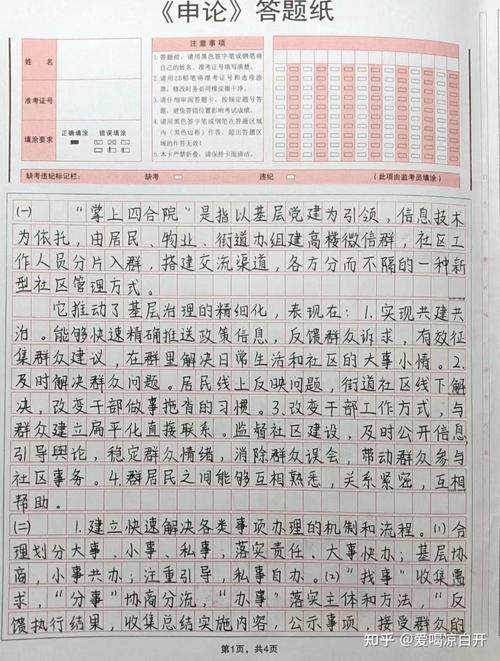 《申论》答题纸
姓 名
准考证号
填涂要求
正确填涂
错误填涂
注意事项
1.答题前,请用黑色签字笔或钢笔将
自己的姓名、准考证号填写清楚。
2.请用2B铅笔将准考证号和选项涂
黑,修改时务必用橡皮擦干净。
3.请仔细审阅答题卡,按规定题号答
题,避免答错位置影响考试成绩。
4.请用黑色签字笔或钢笔在答题区域
内(黑色边框)作答,超出答题区
域的作答无效!
5.本卡严禁折叠,请保持卡面清洁。
缺考违纪标记栏:
缺考
违纪
(此项由监考员填涂)
(一) “掌上四合院”是指以基层党建为引领,信息技术
为依托,由居民、物业、街道办组建高楼微信群,社区工
作人员分片入群,搭建交流渠道,各方分而不隔的一种新
型社区管理方式。
它推动了基层治理的精细化,表现在:1.实现共建共
治。能够快速精确推送政策信息,反馈群众诉求,有效征
集群众建议,在群里解决日常生活和社区的大事小情。2.
及时解决群众问题。居民线上反映问题,街道社区线下解
决,改变干部做事拖沓的习惯。3.改变干部工作方式,与
群众建立扁平化直接联系。监督社区建设,及时公开信息
引导舆论,稳定群众情绪,消除群众误会,带动群众参与
社区事务。4.群居民之间能够互相熟悉,关系紧密,互相
帮助。
(二) 1.建立快速解决各类事项办理的机制和流程。(1)合
理划分大事、小事、私事,落实责任、大事快办;基层协
商,小事共办;注重引导,私事自办。(2)“找事”收集需
求,“分事”协商分流,“办事”落实主体和方法,“反
馈执行结果,收集总结实施内容,公示事项,接受群众的
第1页,共4页
知乎 @爱喝凉白开